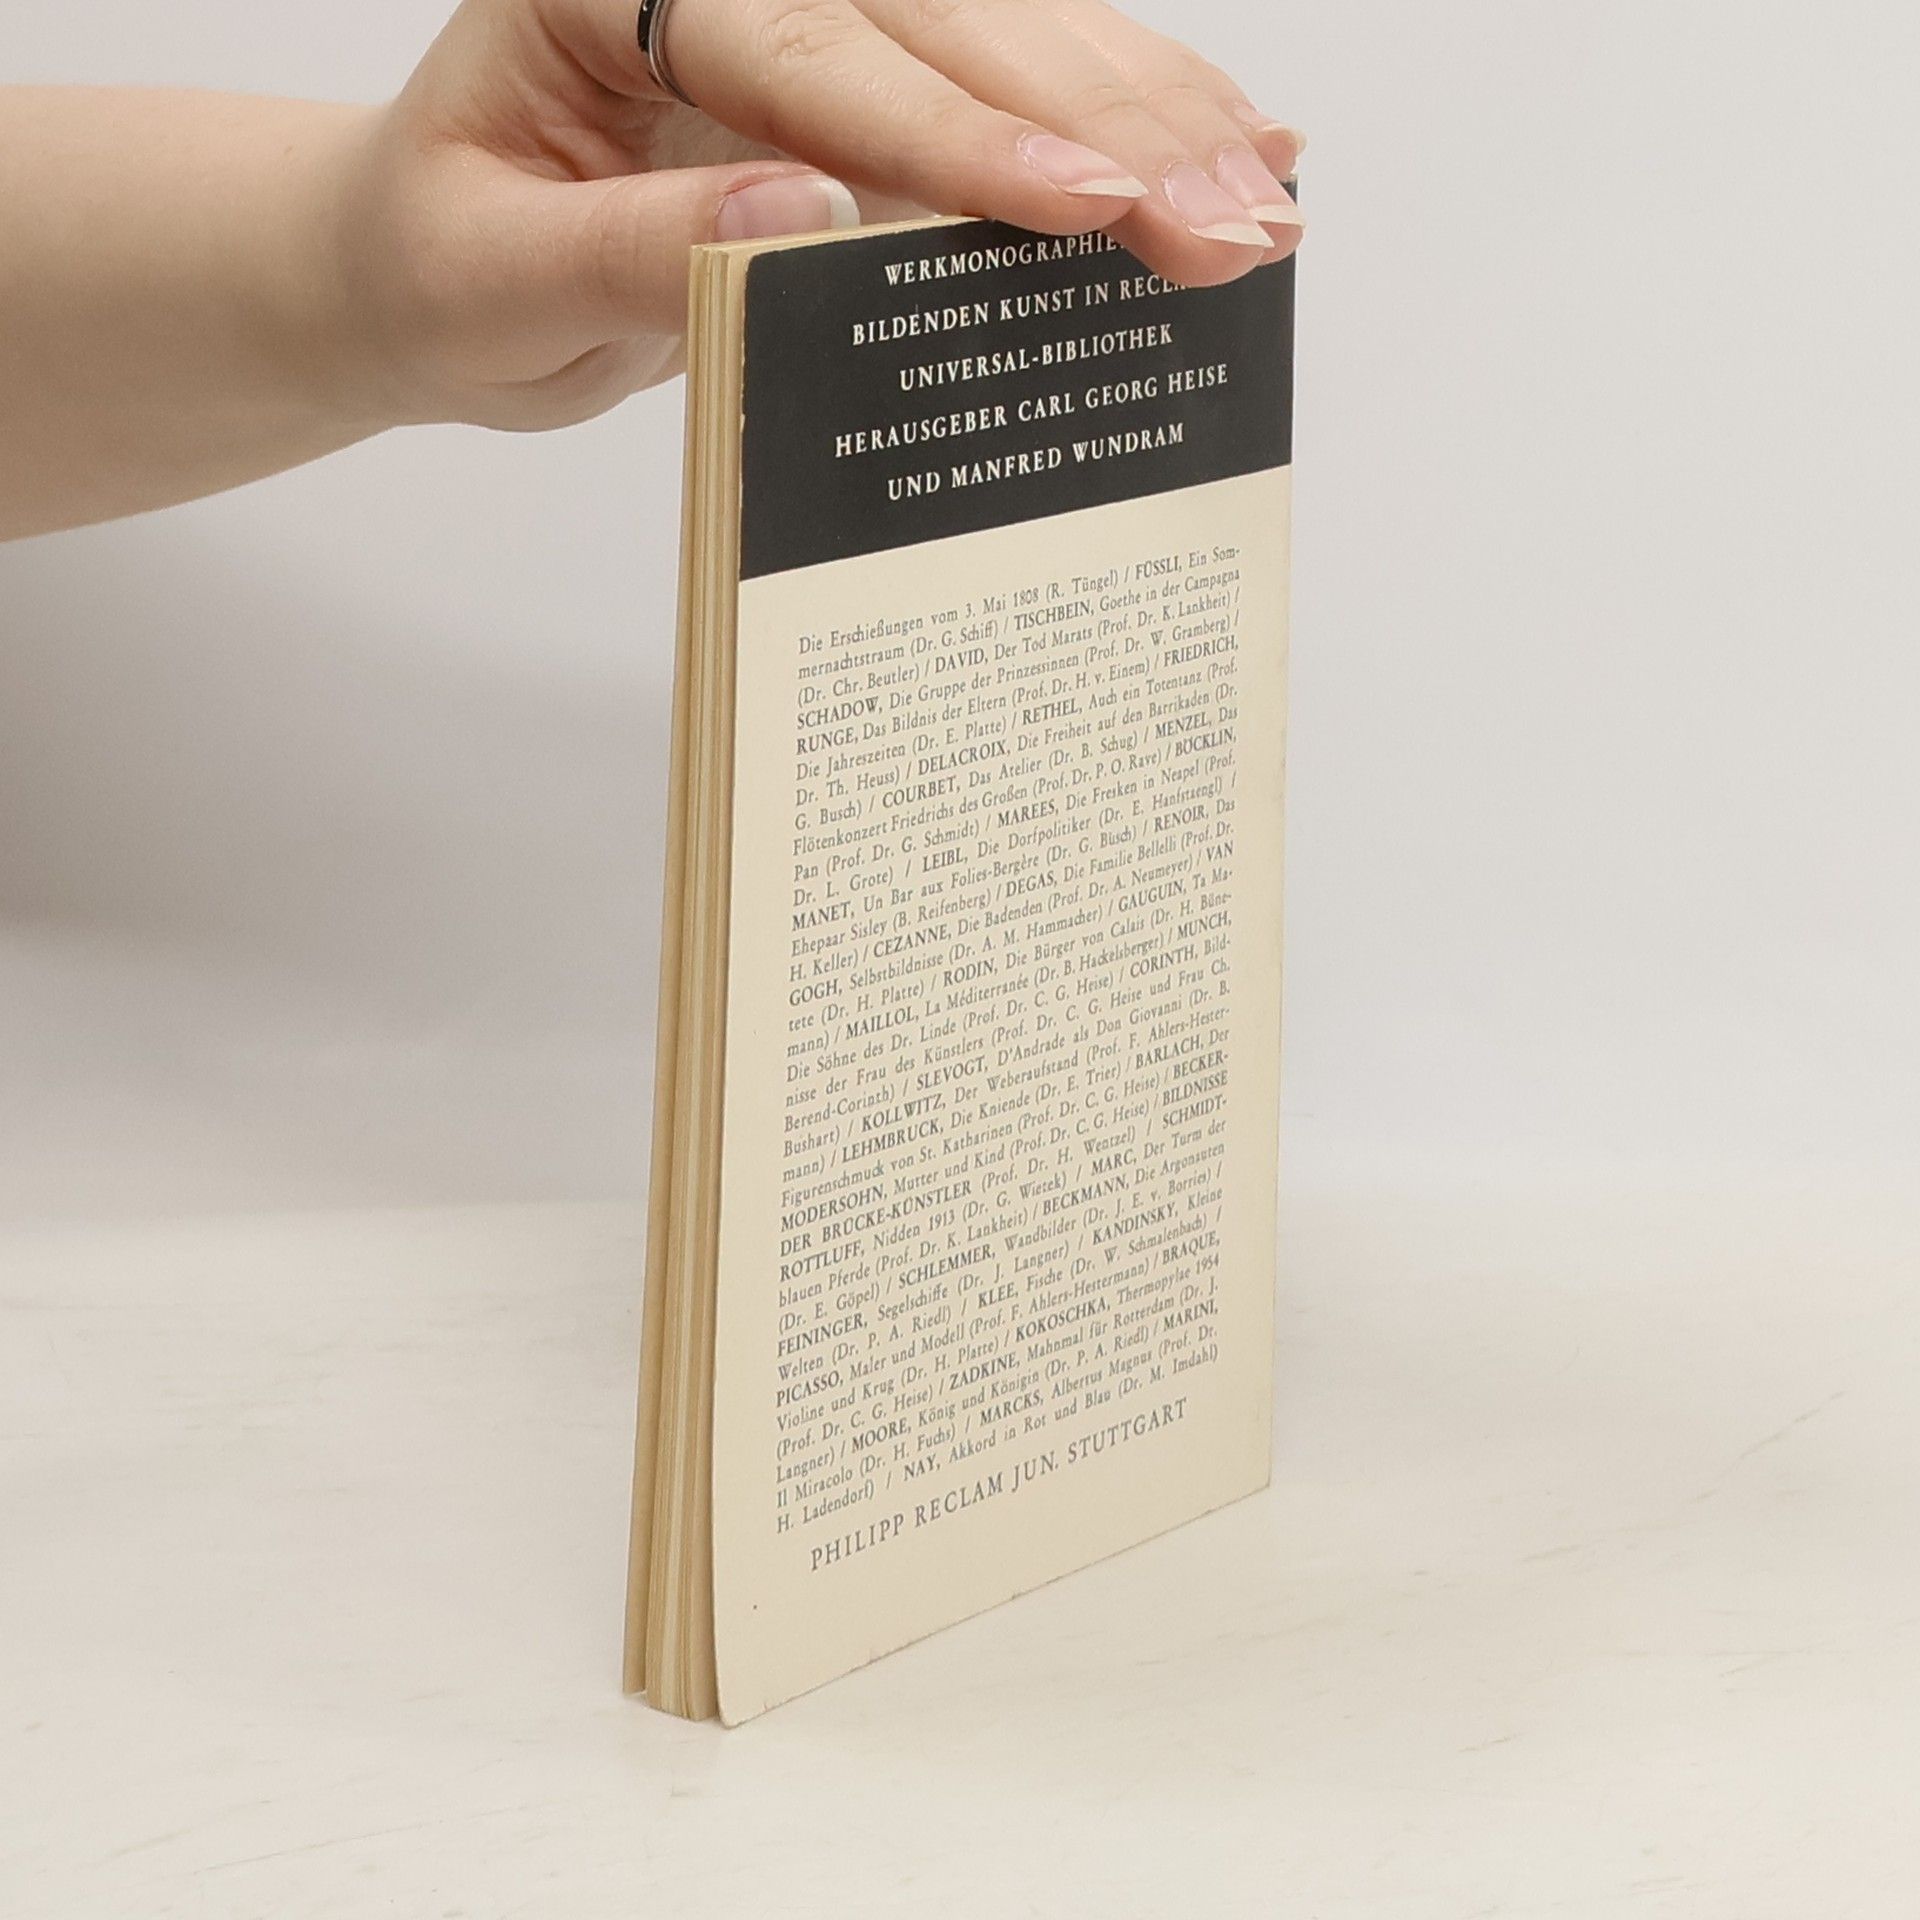 WERKMONOGRAPHIE
BILDENDEN KUNST IN
UNIVERSAL-BIBLIOTHEK
HERAUSGEBER CARL GEORG HEISE
UND MANFRED WUNDRAM
Die Erschießungen vom 3. Mai 1808 (R. Tüngel) / FÜSSLI, Ein Som-
mernachtstraum (Dr. G. Schiff) / TISCHBEIN, Goethe in der Campagna
(Dr. Chr. Beutler) / DAVID, Der Tod Marats (Prof. Dr. K. Lankheit) /
SCHADOW, Die Gruppe der Prinzessinnen (Prof. Dr. W. Gramberg) /
RUNGE, Das Bildnis der Eltern (Prof. Dr. H. v. Einem) / FRIEDRICH,
Die Jahreszeiten (Dr. E. Platte) / RETHEL, Auch ein Totentanz (Prof.
Dr. Th. Heuss) / DELACROIX, Die Freiheit auf den Barrikaden (Dr.
G. Busch) / COURBET, Das Atelier (Dr. B. Schug) / MENZEL, Das
Flötenkonzert Friedrichs des Großen (Prof. Dr. P. O. Rave) / BÖCKLIN,
Pan (Prof. Dr. G. Schmidt) / MAREES, Die Fresken in Neapel (Prof.
Dr. L. Grote) / LEIBL, Die Dorfpolitiker (Dr. E. Hanfstaengl) /
MANET, Un Bar aux Folies-Bergère (Dr. G. Busch) / RENOIR, Das
Ehepaar Sisley (B. Reifenberg) / DEGAS, Die Familie Bellelli (Prof. Dr.
H. Keller) / CEZANNE, Die Badenden (Prof. Dr. A. Neumeyer) / VAN
GOGH, Selbstbildnisse (Dr. A. M. Hammacher) / GAUGUIN, Ta Ma-
tete (Dr. H. Platte) / RODIN, Die Bürger von Calais (Dr. H. Büne-
mann) / MAILLOL, La Méditerranée (Dr. B. Hackelsberger) / MUNCH,
Die Söhne des Dr. Linde (Prof. Dr. C. G. Heise) / CORINTH, Bild-
nisse der Frau des Künstlers (Prof. Dr. C. G. Heise und Frau Ch.
Berend-Corinth) / SLEVOGT, D'Andrade als Don Giovanni (Dr. B.
Bushart) / KOLLWITZ, Der Weberaufstand (Prof. F. Ahlers-Hester-
mann) / LEHMBRUCK, Die Kniende (Dr. E. Trier) / BARLACH, Der
Figurenschmuck von St. Katharinen (Prof. Dr. C. G. Heise) / BECKER-
MODERSOHN, Mutter und Kind (Prof. Dr. C. G. Heise) / BILDNISSE
DER BRÜCKE-KÜNSTLER (Prof. Dr. H. Wentzel) / SCHMIDT-
ROTTLUFF, Nidden 1913 (Dr. G. Wietek) / MARC, Der Turm der
blauen Pferde (Prof. Dr. K. Lankheit) / BECKMANN, Die Argonauten
(Dr. E. Göpel) / SCHLEMMER, Wandbilder (Dr. J. E. v. Borries) /
FEININGER, Segelschiffe (Dr. J. Langner) / KANDINSKY, Kleine
Welten (Dr. P. A. Riedl) / KLEE, Fische (Dr. W. Schmalenbach) /
PICASSO, Maler und Modell (Prof. F. Ahlers-Hestermann) / BRAQUE,
Violine und Krug (Dr. H. Platte) / KOKOSCHKA, Thermopylae 1954
(Prof. Dr. C. G. Heise) / ZADKINE, Mahnmal für Rotterdam (Dr. J.
Langner) / MOORE, König und Königin (Dr. P. A. Riedl) / MARINI,
Il Miracolo (Dr. H. Fuchs) / MARCKS, Albertus Magnus (Prof. Dr.
H. Ladendorf) / NAY, Akkord in Rot und Blau (Dr. M. Imdahl)
PHILIPP RECLAM JUN. STUTTGART